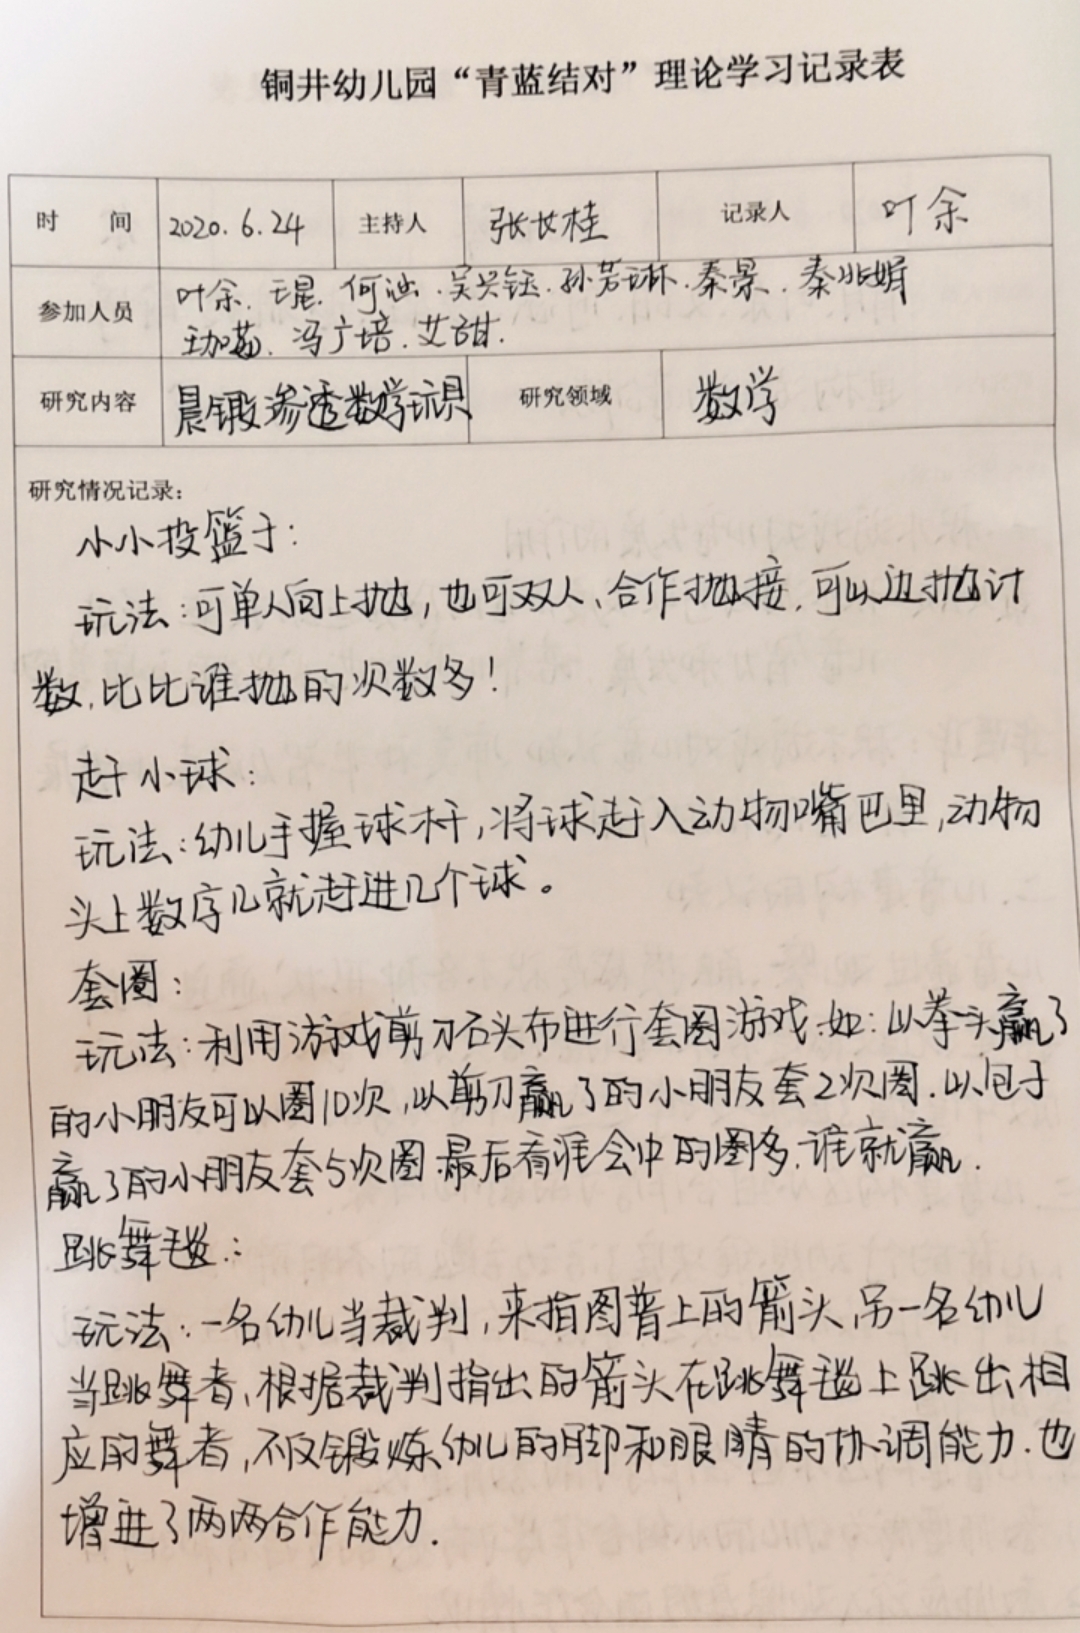 铜井幼儿园“青蓝结对”理论学习记录表
时 间 2020.6.24 主持人 张长桂 记录人 叶余
参加人员 叶余、琨、何涵、吴兴钰、孙若琳、秦景、秦兆娟
冯广培、艾甜.
研究内容 晨锻渗透数学玩具 研究领域 数学
研究情况记录：
小小投篮手：
玩法：可单人向上抛，也可双人、合作抛接，可以边抛计
数，比比谁抛的次数多！
赶小球：
玩法：幼儿手握球杆，将球赶入动物嘴巴里，动物
头上数字几就赶进几个球。
套圈：
玩法：利用游戏剪刀石头布进行套圈游戏.如：以拳头赢了
的小朋友可以圈10次，以剪刀赢了的小朋友套2次圈.以包子
赢了的小朋友套5次圈.最后看谁会中的圈多、谁就赢.
跳舞毯：
玩法：一名幼儿当裁判，来指图普上的箭头，另一名幼儿
当跳舞者，根据裁判指出的箭头在跳舞毯上跳出相
应的舞者，不仅锻炼幼儿的脚和眼睛的协调能力.也
增进了两两合作能力.